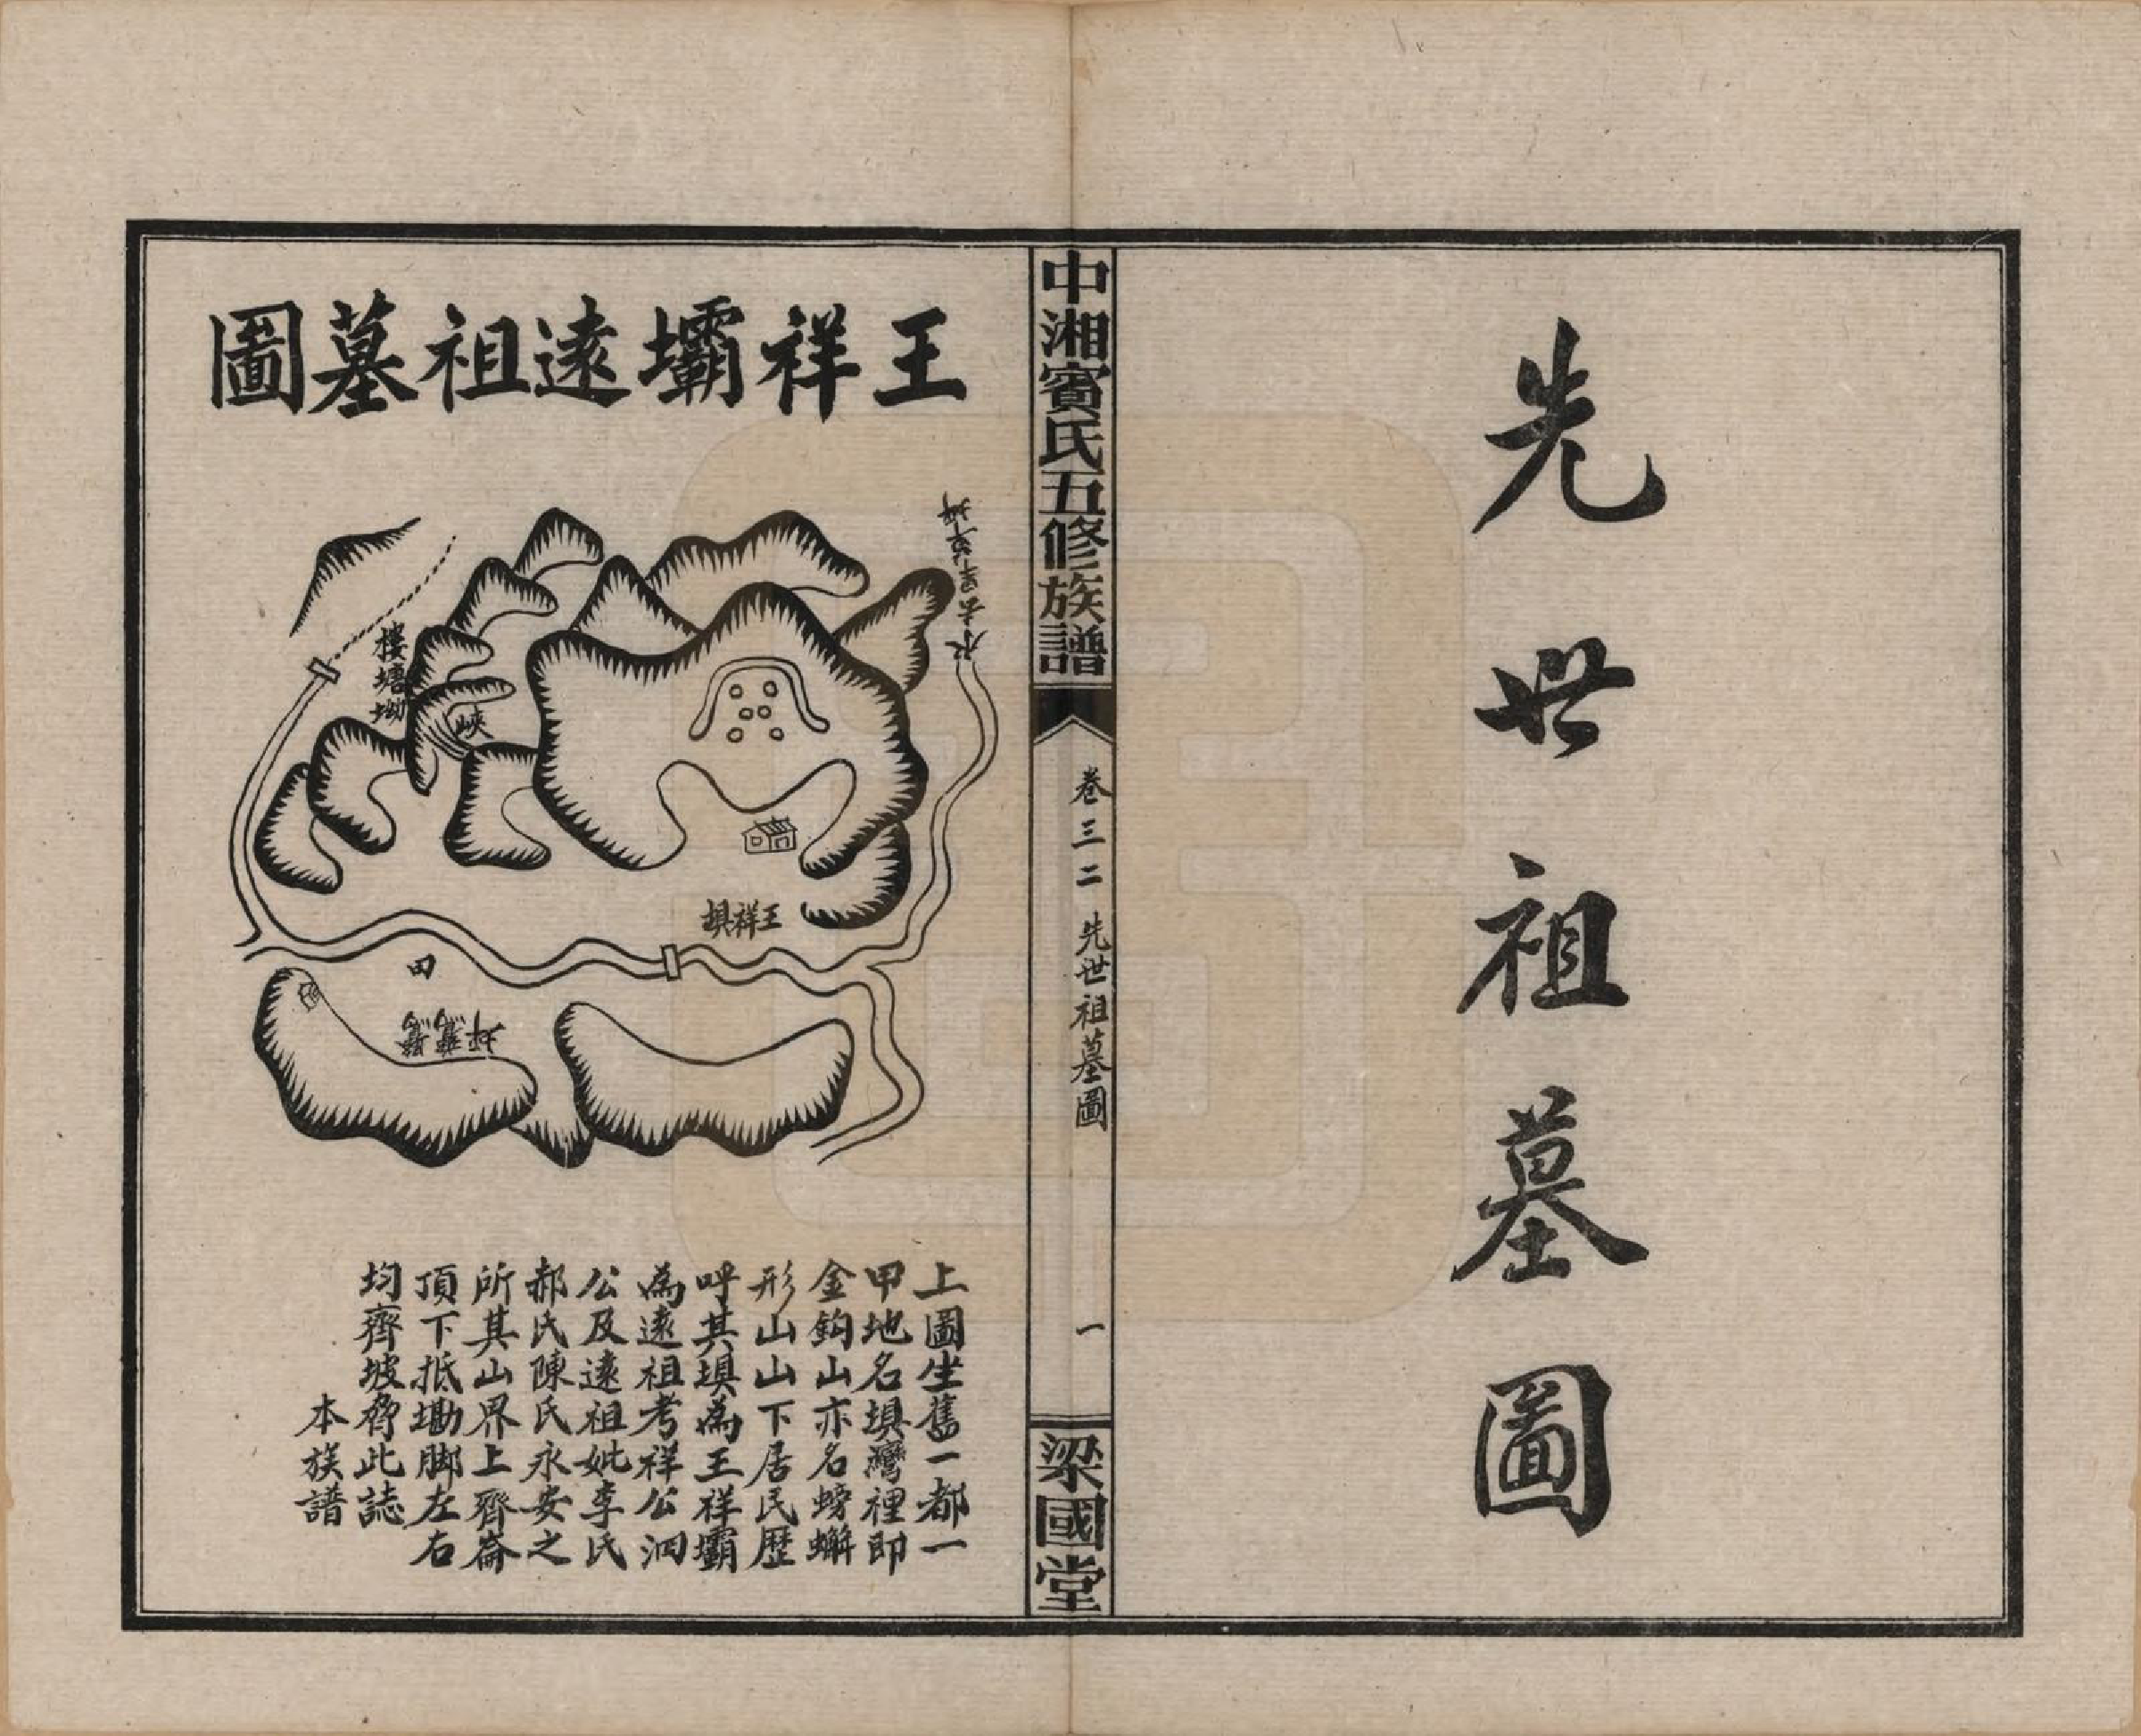 先世祖墓圖
中湘賓氏五修族譜
卷三二 先世祖墓圖
一
梁國堂
王祥壩遠祖墓圖
樓塘坳
峽
王祥埧
田
上圖坐舊一都一
甲地名埧灣裡即
金鈎山亦名螃蠏
形山山下居民歷
呼其埧為王祥壩
為遠祖考祥公泗
公及遠祖妣李氏
郝氏陳氏永安之
所其山界上齊崙
頂下抵墈脚左右
均齊坡脊此誌
本族譜